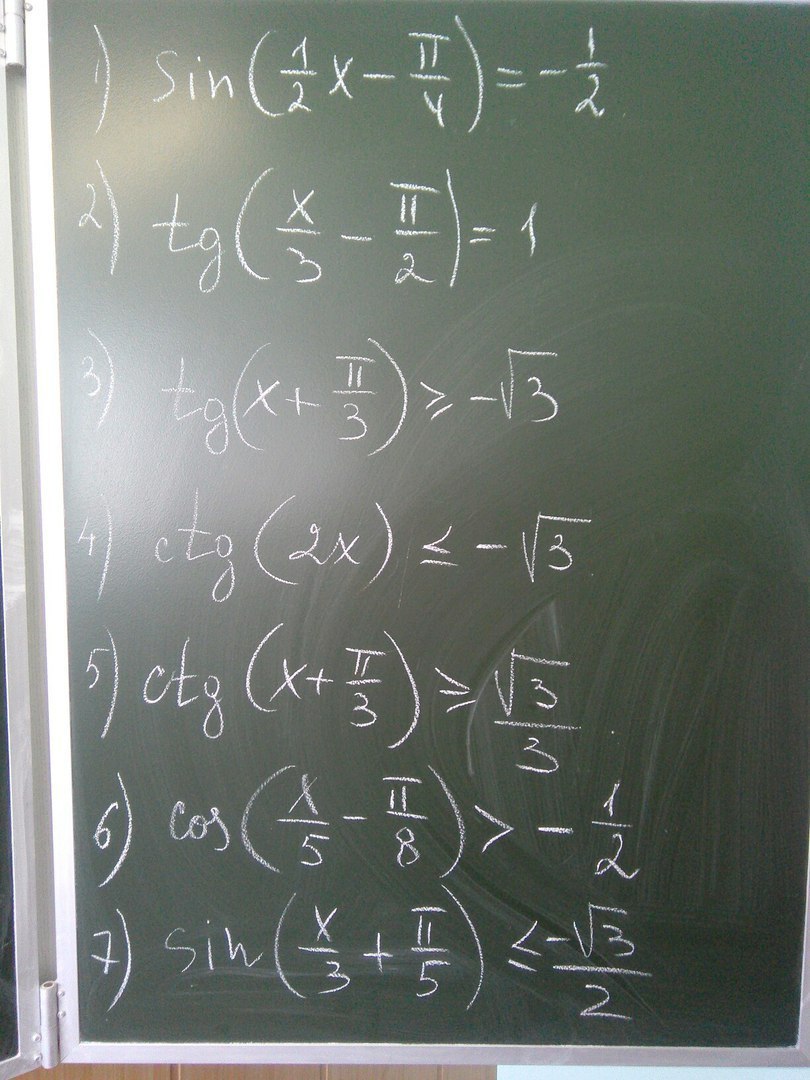 1) sin(1/2 x − π/4) = −1/2
2) tg(x/3 − π/2) = 1
3) tg(x + π/3) ⩾ −√3
4) ctg(2x) ≤ −√3
5) ctg(x + π/3) ⩾ √3/3
6) cos(x/5 − π/8) > −1/2
7) sin(x/3 + π/5) ≤ −√3/2